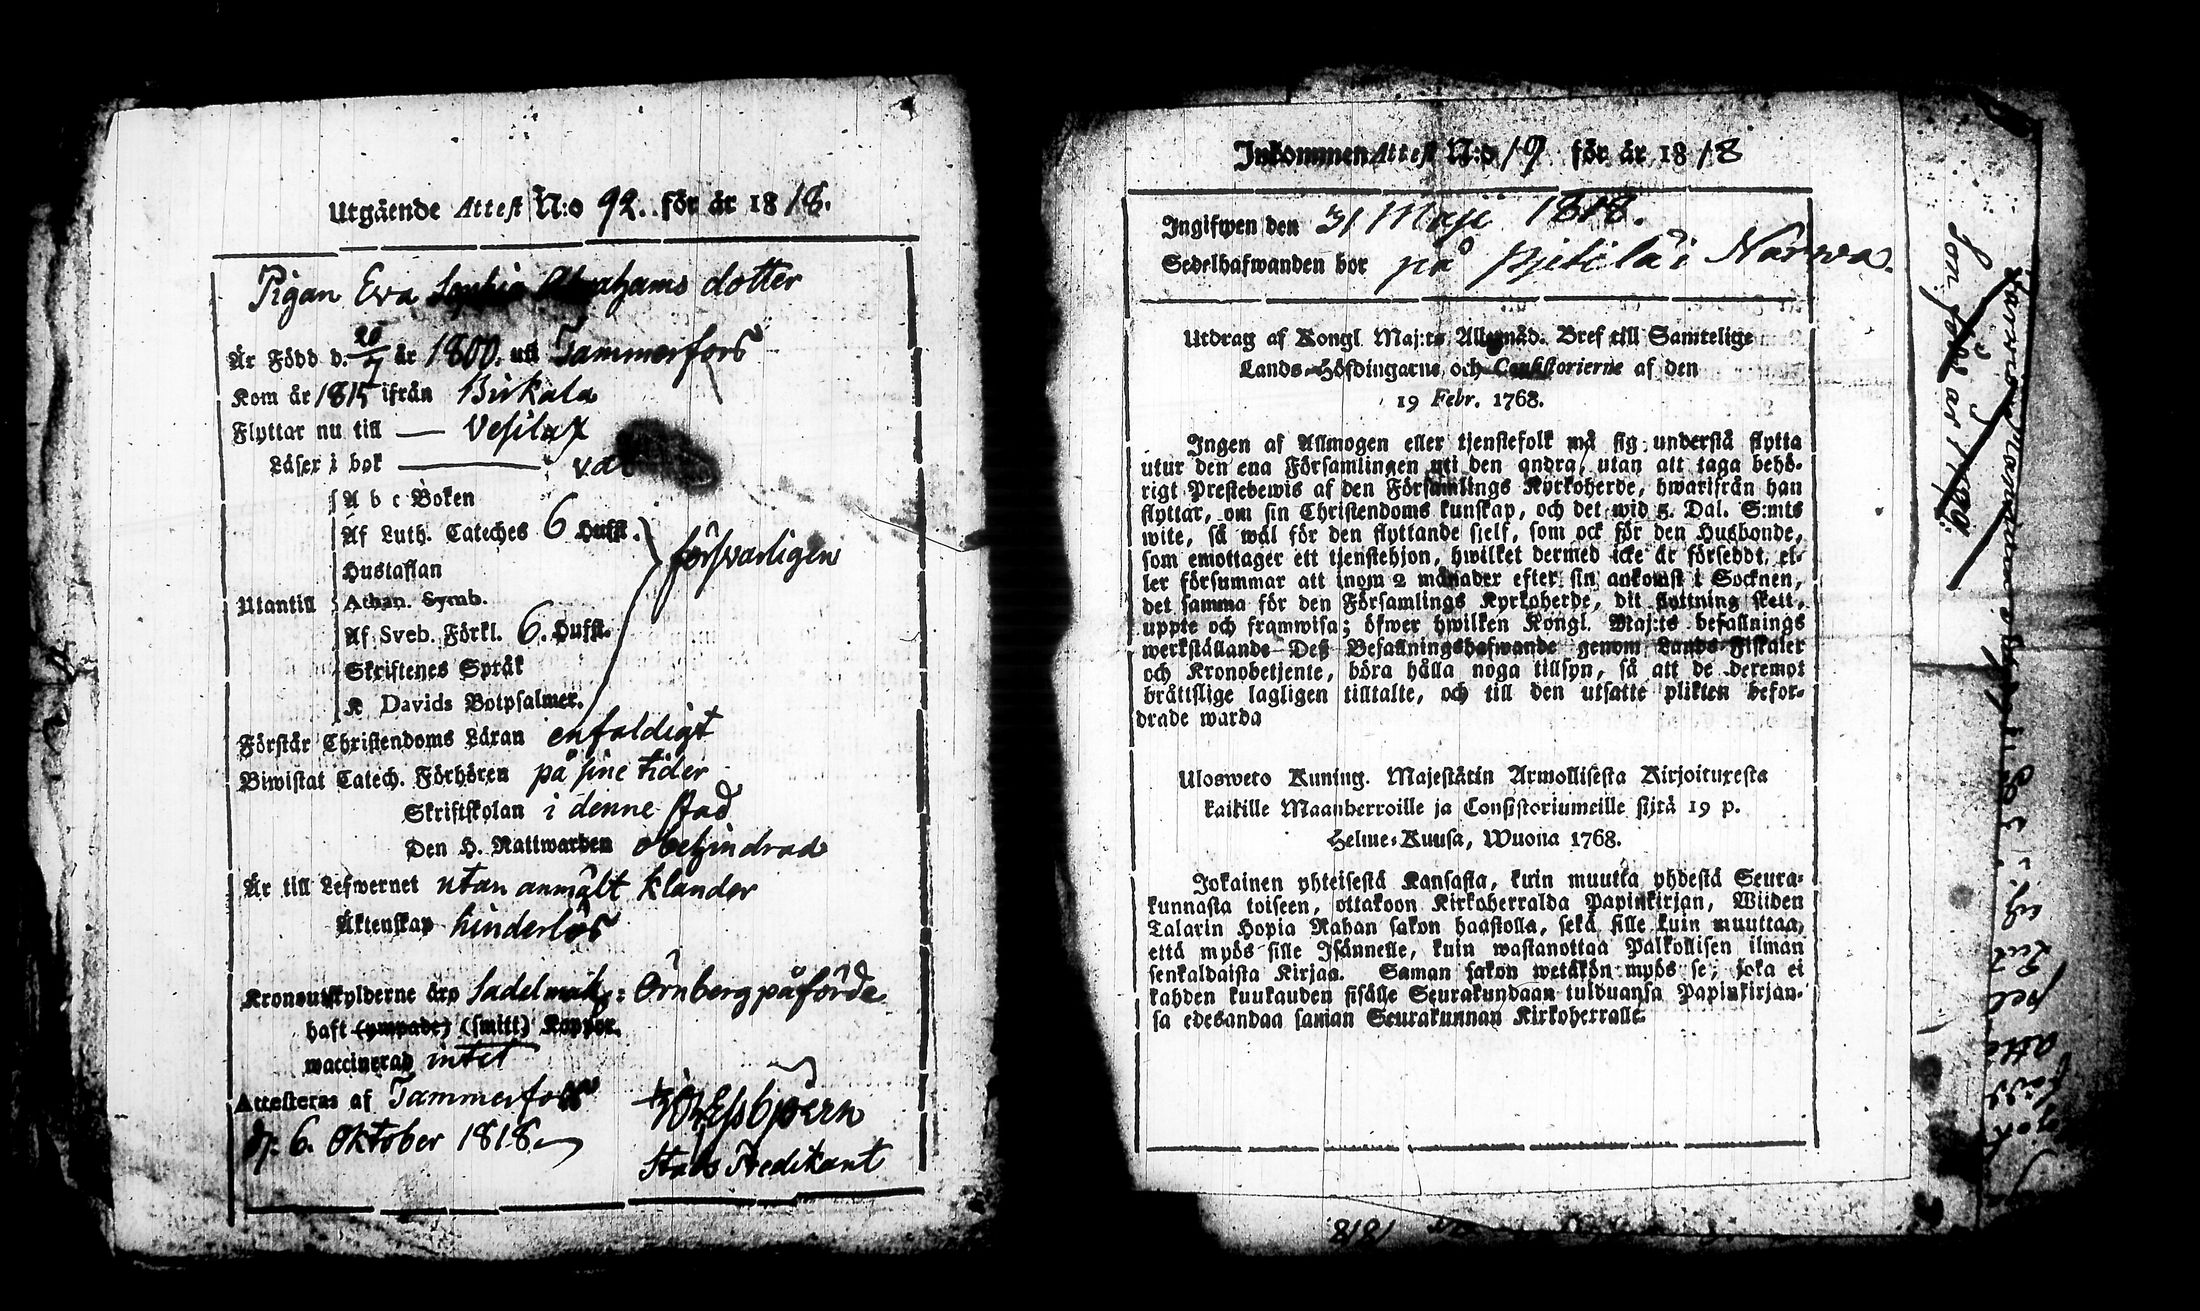 Utgående Attest N:o 92. för år 1818.
Pigan Eva Sophia Abrahams dotter
Är Född d. 20/7 år 1800. uti Tammerfors
Kom år 1815 ifrån Birkala
Flyttar nu till — Vesilax
Läser i bok — val
A b c Boken
Af Luth. Cateches 6 Hufst.
försvarligen
Hustaflan
Utantill Athan. Symb.
Af Sveb. Förkl. 6. Hufst.
Skriftenes Språk
K Davids Botpsalmer.
Förstår Christendoms Läran enfaldigt
Biwistat Catech. Förhören på sine tider
Skriftskolan i denne stad
Den H. Nattwarden obehindrad
Är till Lefwernet utan anmält klander
Äktenskap hinderlös
Kronoutskylderne äro Sadelmak: Örnberg påförde
haft (ympade) (smitt) Koppor.
waccinerad intet
Attesteras af Tammerfors
d. 6. Oktober 1818.
Stads Predikant
Inkommen Attest N:o 19 för år 1818
Ingifwen den 31 Maji 1818.
Sedelhafwanden bor på i Narva.
Utdrag af Kongl. Maj:ts Allernåd. Bref till Samtelige
Lands-Höfdingarne och Consistorierne af den
19 Febr. 1768.
Ingen af Allmogen eller tjenstefolk må sig understå flytta
utur den ena Församlingen uti den andra, utan att taga behö-
rigt Prestebewis af den Församlings Kyrkoherde, hwarifrån han
flyttar, om sin Christendoms kunskap, och det wid 5. Dal. S:mts
wite, så wäl för den flyttande sielf, som ock för den Husbonde,
som emottager ett tjenstehjon, hwilket dermed icke är försedt, el-
ler försummar att inom 2 månader efter sin ankomst i Socknen,
det samma för den Församlings Kyrkoherde, dit flyttning skett,
uppte och framwisa; öfwer hwilken Kongl. Maj:ts befallnings
werkställande Deß Befallningshafwande genom Lands-Fiskaler
och Kronobetjente, böra hålla noga tillsyn, så att de deremot
bråttslige lagligen tilltalte, och till den utsatte plikten befor-
drade warda
Ulosweto Kuning. Majestätin Armollisesta Kirjoituxesta
kaikille Maanherroille ja Consistoriumeille siitä 19 p.
Helme-Kuusa, Wuona 1768.
Jokainen yhteisestä Kansasta, kuin muutta yhdestä Seura-
kunnasta toiseen, ottakoon Kirkoherralda Papinkirjan, Wiiden
Talarin Hopia Rahan sakon haastolla, sekä sille kuin muuttaa,
että myös sille Isännelle, kuin wastanottaa Palkollisen ilman
senkaldaista Kirjaa. Saman sakon wetäkön myös se, joka ei
kahden kuukauden sisälle Seurakundaan tulduansa Papinkirjan-
sa edesandaa saman Seurakunnan Kirkoherralle.
Son född år 1799.
1818